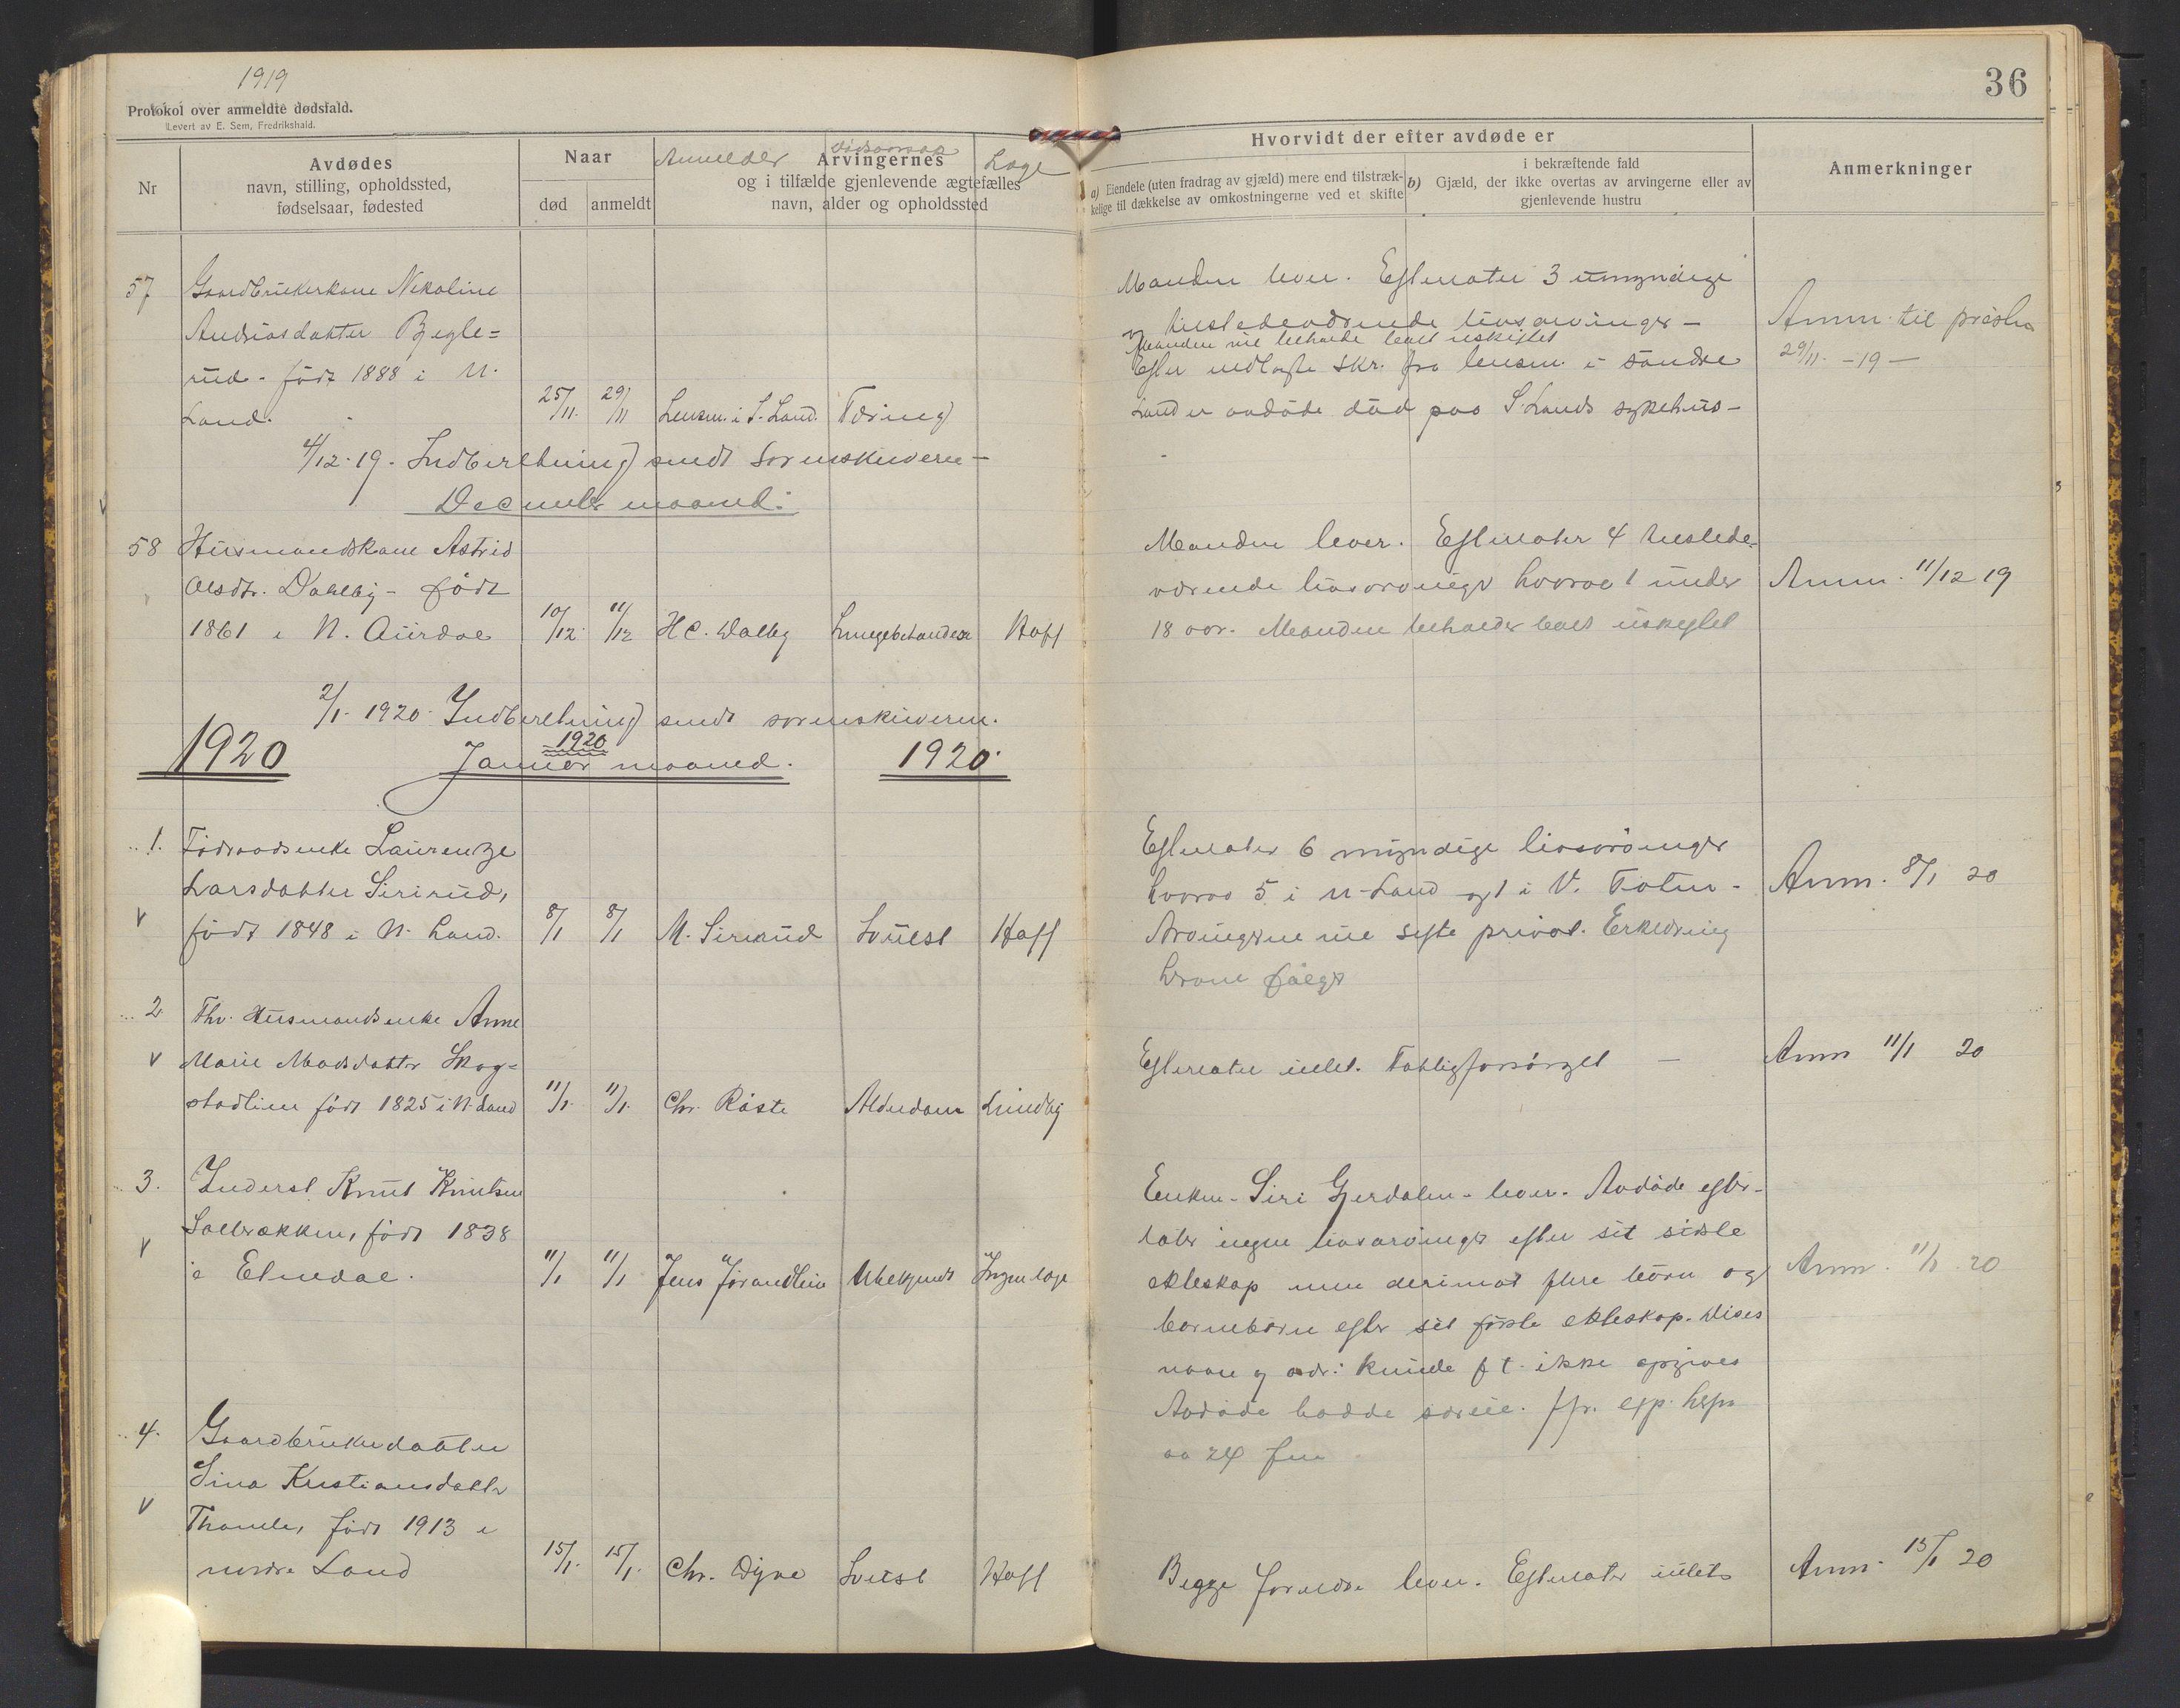 1919
36
Protokol over anmeldte dødsfald.
Levert av E. Sem, Fredrikshald.
Nr
Avdødes
navn, stilling, opholdssted,
fødselsaar, fødested
Naar
død
anmeldt
Anmelder
Dødsaarsag
Læge
Arvingernes
og i tilfælde gjenlevende ægtefælles
navn, alder og opholdssted
Hvorvidt der efter avdøde er
a) Eiendele (uten fradrag av gjæld) mere end tilstræk-
kelige til dækkelse av omkostningerne ved et skifte
i bekræftende fald
b) Gjæld, der ikke overtas av arvingerne eller av
gjenlevende hustru
Anmerkninger
57 Gaardbrukerkone Nikoline
Andriasdatter Bjegle=
rud - født 1888 i N.
Land. 25/11. 29/11 Lensm. i S. Land. Tæring
Manden lever. Efterlater 3 umyndige
tilstedeværende livsarvinger -
og Manden vil beholde boet uskiftet
Efter modtagt skr. fra lensm. i søndre
Land er avdøde død paa S. Lands sykehus -
Anm. til præsten
29/11 - 19 -
4/12 - 19 - Indberetning sendt Sorenskriveren -
December maaned.
58 Husmandskone Astrid
Olsdtr. Dahlby - født
1861 i N. Aurdal 10/12 11/12 H C. Dalby Lungebetændelse Hoff
Manden lever. Efterlater 4 tilstede-
værende livsarvinger hvorav 1 under
18 aar. Manden beholder boet uskiftet
Anm. 11/12 19
2/1. 1920. Indberetning sendt sorenskriveren.
1920
1920 Januar maaned. 1920.
1. Føderaadsenke Laurenze
Larsdatter Sirirud,
V født 1848 i N. Land. 8/1 8/1 M. Sirirud Lungebet Hoff
Efterlater 6 myndige livsarvinger
hvorav 5 i N-Land og 1 i V. Toten -
Arvingerne vil skifte privat. Erklæring
herom følger
Anm. 8/1 20
2 Fhv. Husmandsenke Anne
V Marie Madsdatter Skog=
stadlien født 1825 i N. Land 11/1. 11/1. Chr. Røste Alderdom Lindby
Efterlater intet. Fattigforsørget -
Anm 11/1 20
3. Inderst Knut Knutsen
Solbrækken, født 1838
V i Etnedal. 11/1 11/1 Jens Jørandlien Ubekjendt Ingen læge
Enken - Siri Gjerdalen - lever. Avdøde efter-
later ingen livsarvinger efter sit sidste
ekteskap men derimot flere børn og
barnebørn efter sit første ekteskap. Disses
navn og adr: kunde f t. ikke opgives
Avdøde hadde særeie.
Anm. 11/1 20
4. Gaardbrukerdatter
Lina Kristiansdatter
V Thomle, født 1913 i
nordre Land 15/1. 15/1. Chr. Dyve Hoff
Begge forældre lever. Efterlater intet
Anm. 15/1 20